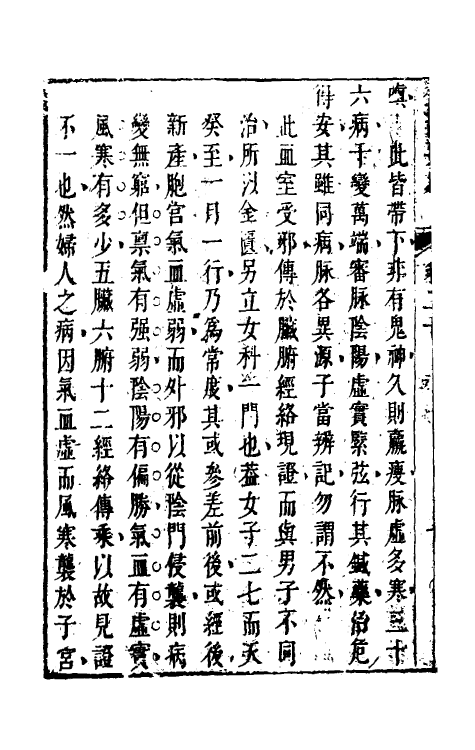 嗔此皆帶下非有鬼神久則羸瘦脉虛多寒三十
六病千變萬端審脉陰陽虛實緊弦行其鍼藥治危
得安其雖同病脉各異源子當辨記勿謂不然
此血室受邪傳於臟腑經絡現證而與男子不同
治所以金匱另立女科一門也蓋女子二七而天
癸至一月一行乃為常度其或參差前後或經後
新產胞宮氣血虛弱而外邪以從陰門侵襲則病
變無窮但稟氣有强弱陰陽有偏勝氣血有虛實
風寒有多少五臟六腑十二經絡傳乘以故見證
不一也然婦人之病因氣血虛而風寒襲於子宮